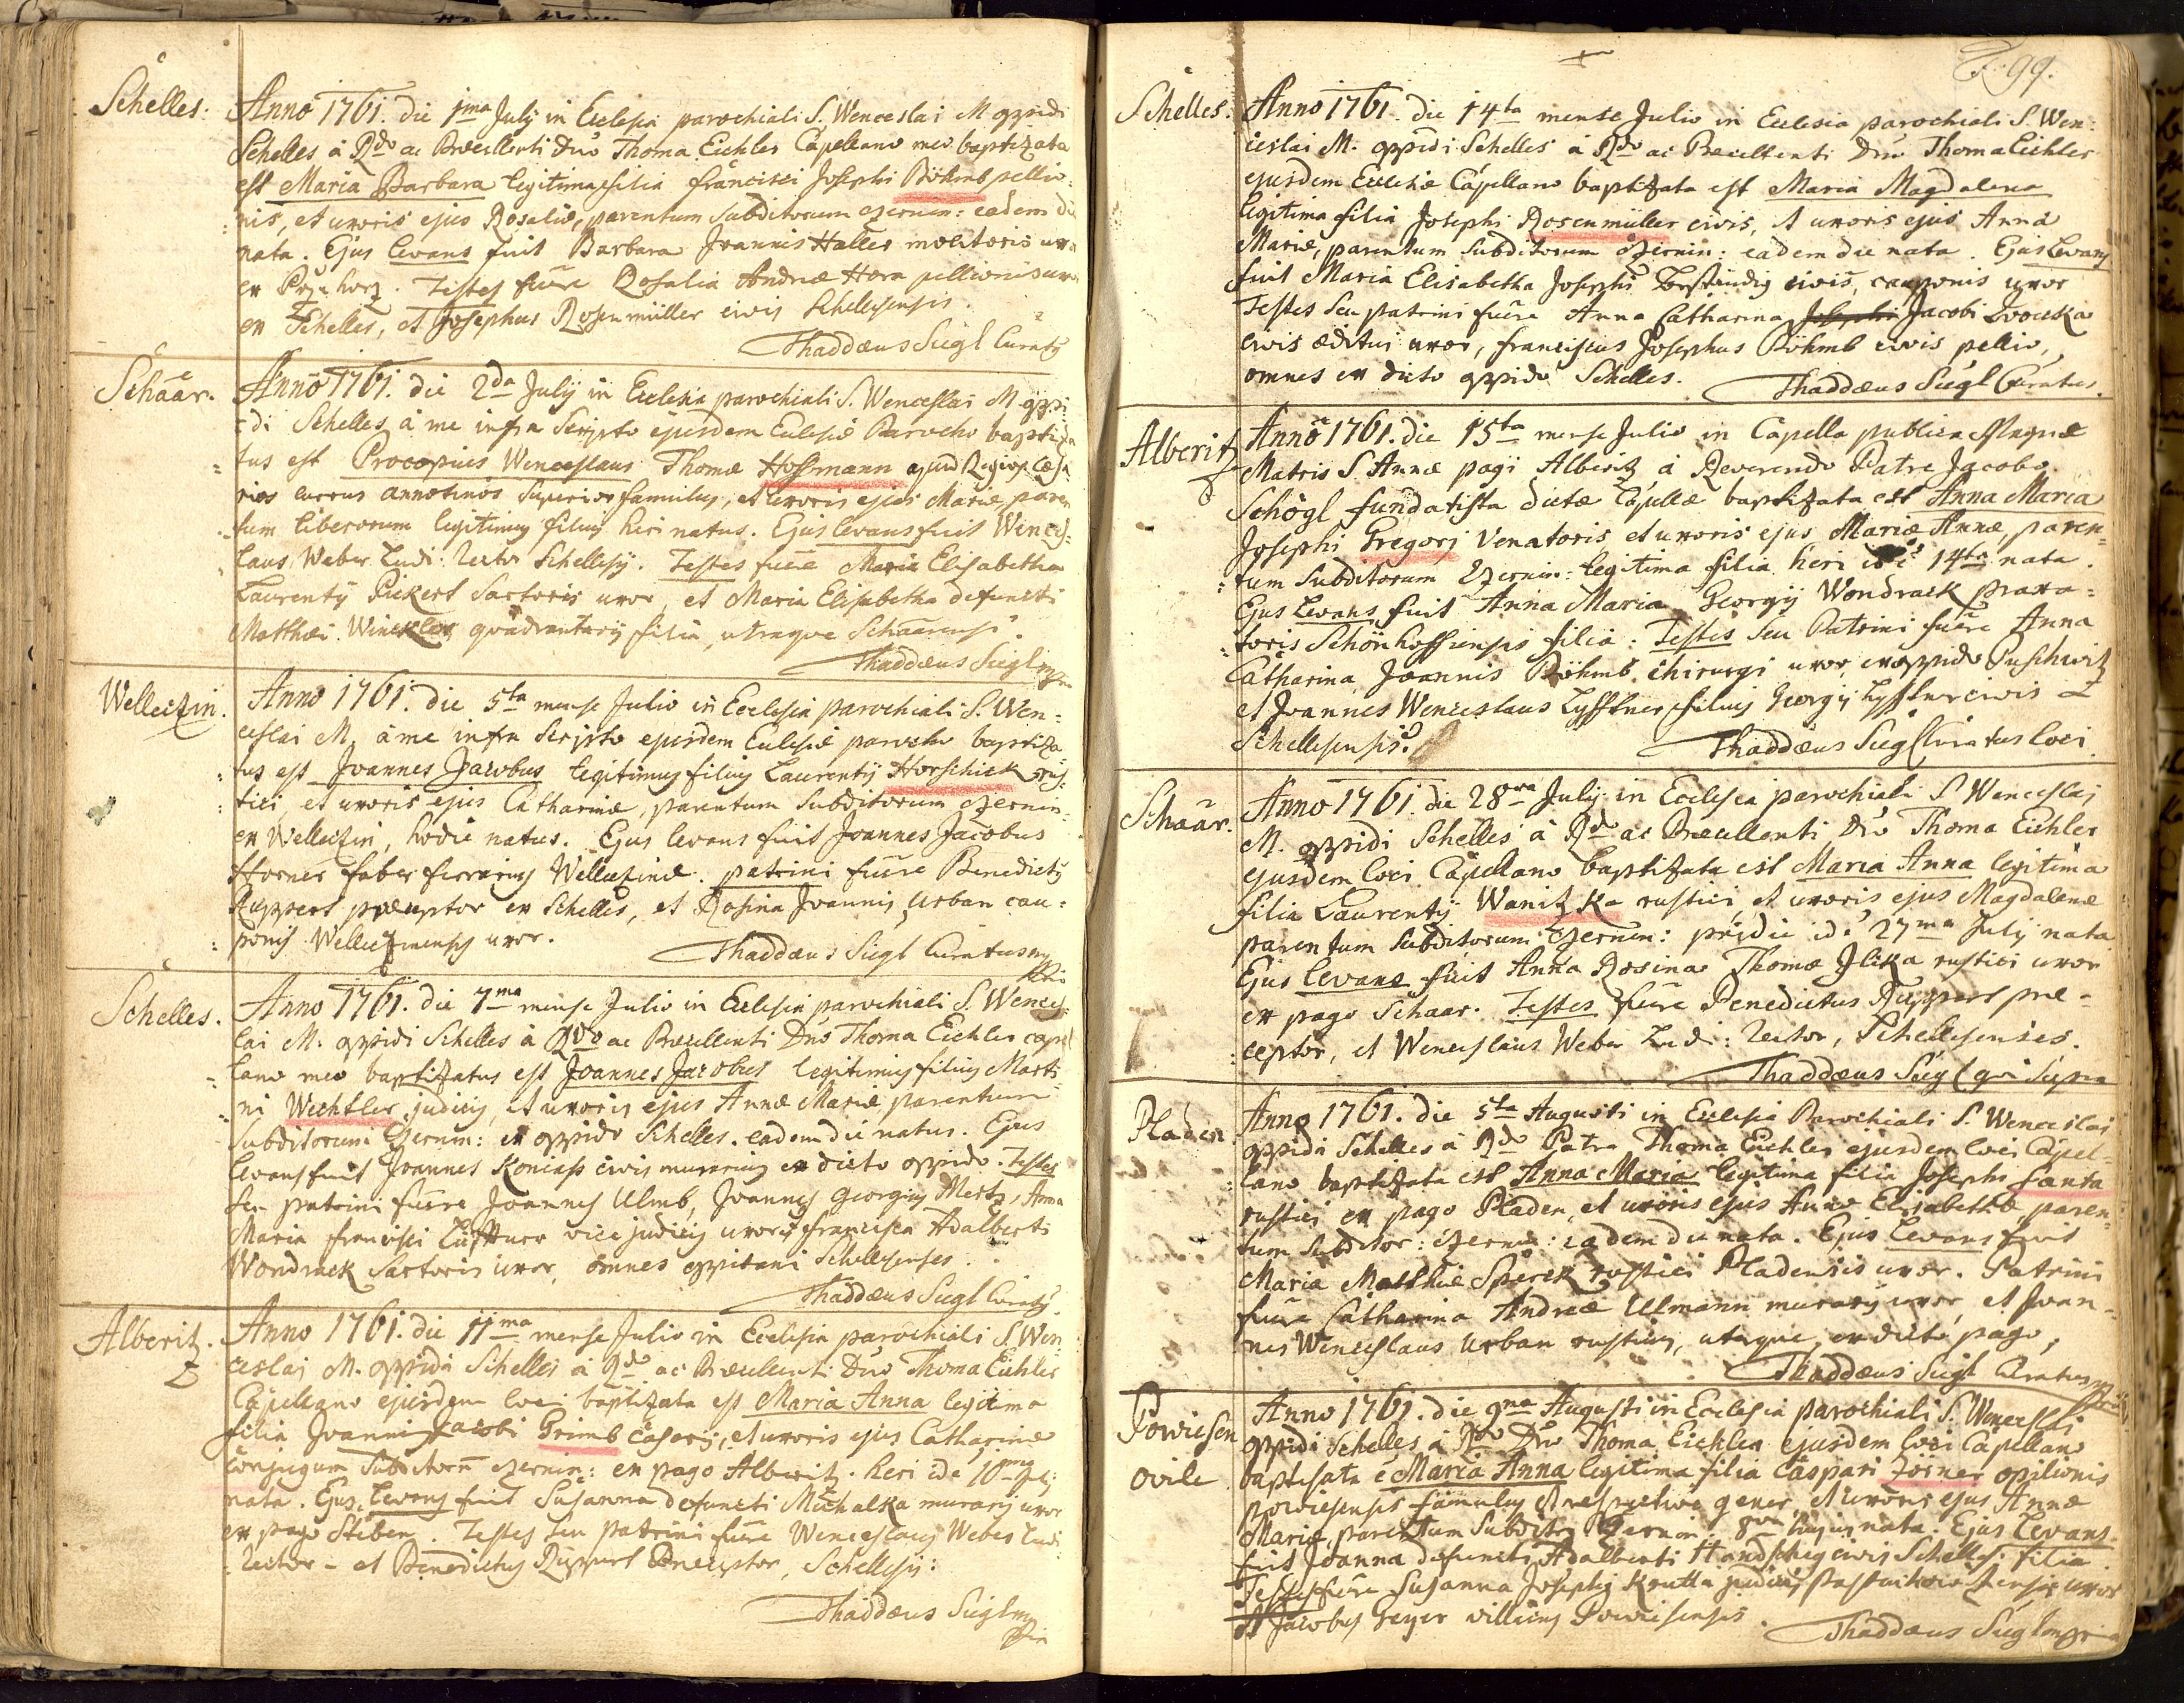 Schelles.
Anno 1761. die 1ma July in Ecclesia parochiali S. Wenceslai M. oppidi
Schelles à Rdo ac Præcellenti Dno Thoma Eichler Capellano meo baptizata
est Maria Barbara legitima filia Francisci Josephi Böhmb pellio-
nis, et uxoris ejus Rosaliæ, parentum Subditorum czernin: eadem die
nata. Ejus levans fuit Barbara Joannis Haller molitoris uxor
ex. Testes fuêre Rosalia Andreæ Hora pellionis uxor
ex Schelles, et Josephus Rosenmüller civis Schellesensis.
Thaddæus Siegl Curatus
Schaar.
Anno 1761. die 2da July in Ecclesia parochiali S. Wenceslai M. oppi-
:di Schelles à me infra Scripto ejusdem Eclesiæ Parocho baptiza
tus est Procopius Wenceslaus Thomæ Hoffmann apud
annotinos famulus, et uxoris ejus Mariæ, paren
:tum liberorum legitimus filius heri natus. Ejus levans fuit Wences-
laus Weber Ludi: rector Schellesÿ. Testes fuêre Maria Elisabetha
Laurentÿ Pickert Sartoris uxor, et Maria Elisabetha defuncti
Matthæi Winckler quadrantarÿ filia, utraque Schaarensis.
Thaddæus Siegl mppria
Welletzin.
Anno 1761. die 5ta mense Julio in Ecclesia parochiali S. Wen-
ceslai M. à me infra Scripto ejusdem Eclesiæ parocho baptiza
:tus est Joannes Jacobus legitimus filius Laurentÿ Horschick rus-
:tici, et uxoris ejus Catharinæ, parentum Subditorum czernin:
ex Welletzin, hodie natus. Ejus levans fuit Joannes Jacobus
Horner faber ferrarius Welletzinæ. patrini fuêre Benedictus
Ruppert præceptor ex Schelles, et Rosina Joannis Urban cau-
:ponis Welletzinensis uxor.
Thaddæus Siegl Curatus mppria
Schelles.
Anno 1761. die 7ma mense Julio in Ecclesia parochiali S. Wences-
lai M. oppidi Schelles à Rdo ac Præcellenti Dno Thoma Eichler capel
lano meo baptizatus est Joannes Jacobus legitimus filius Marti-
:ni Wechtler judicis, et uxoris ejus Annæ Mariæ, parentum
Subditorum Czernin: ex oppido Schelles. eadem die natus. Ejus
levans fuit Joannes Koniass civis murarius ex dicto oppido. Testes
seu patrini fuêre Joannes Ulmb, Joannes Georgius Mertz, Anna
Maria Francisci Lüfftner vice judicis uxor, Francisca Adalberti
Wondrack Sartoris uxor, omnes oppidani Schellesenses.
Thaddæus Siegl Curatus.
Alberitz.
Anno 1761. die 11ma mense Julio in Ecclesia parochiali S. Wen-
ceslai M. oppidi Schelles à Rdo ac Præcellenti Dno Thoma Eichler
Capellano ejusdem loci baptizata est Maria Anna legitima
filia Joannis Jacobi Grimb casarÿ, et uxoris ejus Catharinæ
conjugum Subditorum czernin: ex pago Alberitz. heri id e 10ma
nata. Ejus levans fuit Susanna defuncti Michalka murarÿ uxor
ex pago Steben. Testes seu patrini fuêre Wenceslaus Weber Ludi:
rector - et Benedictus Ruppert Præceptor, Schellesÿ:
Thaddæus Siegl mppria
F. 99.
Schelles.
Anno 1761. die 14ta mense Julio in Ecclesia parochiali S. Wen-
ceslai M. oppidi Schelles à Rdo ac Præcellenti Dno Thoma Eichler
ejusdem Ecclesiæ Capellano baptizata est Maria Magdalena
legitima filia Josephi Rosenmüller civis, et uxoris ejus Anna
Mariæ, parentum Subditorum Czernin: eadem die nata. Ejus Levans
fuit Maria Elisabetha Josephi civis, cauponis uxor
Testes Seu patrini fuêre Anna Catharina Josephi Jacobi
civis æditui uxor, Franciscus Josephus Böhmb civis pellio,
omnes ex dicto oppido Schelles.
Thaddæus Siegl Curatus.
Alberitz
Anno 1761. die 15ta mense Julio in Capella publica Magnæ
Matris S. Annæ pagi Alberitz à Reverendo Patre Jacobo
Schögl fundatista dictæ Capellæ baptizata est Anna Maria
Josephi Gregori Venatoris et uxoris ejus Mariæ Annæ, paren-
:tum Subditorum Czernin: legitima filia heri id e 14ta nata.
Ejus Levans fuit Anna Maria Georgÿ Wondrack
:toris Schönhoffiensis filia: Testes seu Patrini fuêre Anna
Catharina Joannis Böhmb chirurgi uxor, ex oppido Puschwitz
et Joannes Wenceslaus Lyfftner filius Georgÿ Lyfftner civis
Schellesensis.
Thaddæus Siegl Curatus loci
Schaar.
Anno 1761. die 28va July in Ecclesia parochiali S. Wenceslai
M. oppidi Schelles à Rdo ac Præcellenti Dno Thoma Eichler
ejusdem loci Capellano baptizata est Maria Anna legitima
filia Laurentÿ Wanitzka rustici et uxoris ejus Magdalenæ
parentum Subditorum Czernin: pridie id e 27ma July nata
Ejus Levans fuit Anna Rosina Thomæ Jlika rustici uxor
ex pago Schaar. Testes fuêre Benedictus Ruppert præ-
:ceptor, et Wenceslaus Weber Ludi: rector, Schellesenses.
Thaddæus Siegl qui Supra
Pladen
Anno 1761. die 5ta Augusti in Ecclesia Parochiali S. Wenceslai
oppidi Schelles à Rdo Patre Thoma Eichler ejusdem loci Capel-
:lano baptizata est Anna Maria legitima filia Josephi Fanta
rustici ex pago Pladen, et uxoris ejus Annæ Elisabethæ paren-
tum Subditor: czernin: eadem die nata. Ejus Levans fuit
Maria Matthiæ Sperck rustici Pladensis uxor. Patrini
fuêre Catharina Andreæ Ulmann murarÿ uxor, et Joan-
nes Wenceslaus Urban rusticus, uterque ex dicto pago,
Thaddæus Siegl Curatus mppria
Powiesen
ovile
Anno 1761. die 9na Augusti in Ecclesia parochiali S. Wenceslai
oppidi Schelles à Rdo Dno Thoma Eichler ejusdem loci Capellano
baptisata e Maria Anna legitima filia Caspari Zörner opilionis
powiesensis famulus et respective gener, et uxoris ejus Annæ
Mariæ parentum Subditor: Czernin: 8va hujus nata. Ejus Levans
fuit Joanna defuncti Adalberti Handschig civis Schelles: filia
Testes fuêre Susanna Josephi Krutta judicis uxor
et Jacobus Geyer villicus Powiesensis.
Thaddæus Siegl mppria